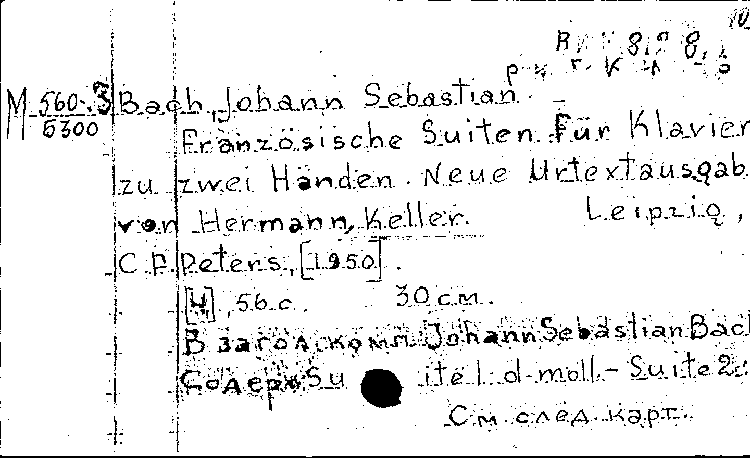 10
M 560.3 / 5300
Bach, Johann Sebastian.
Französische Suiten für Klavier
zu zwei Händen. Neue Urtextausgab
von Hermann, Keller. Leipzig,
C. F. Peters, [1950].
[4], 56 с. 30 см.
В загол. комп. Johann Sebastian Bach
Содерж Su ite 1: d-moll.- Suite 2:
См. след. карт.